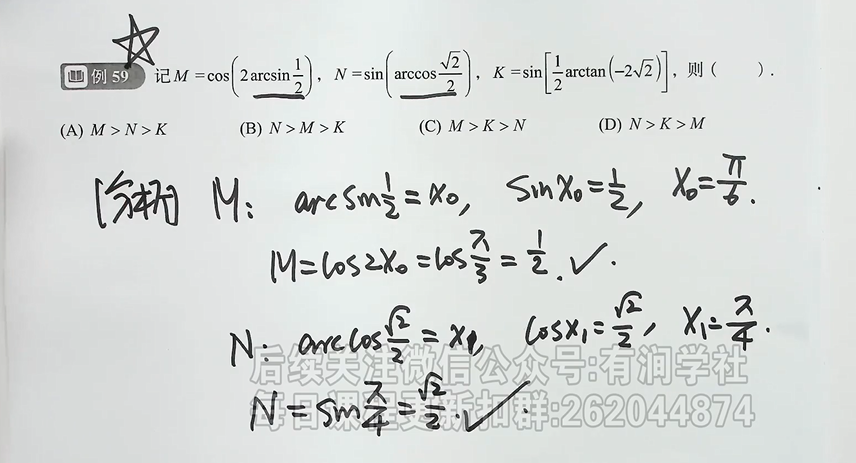 例 59 记 M = cos(2arcsin 1/2), N = sin(arccos √2/2), K = sin[1/2 arctan(-2√2)], 则 ( ).
(A) M > N > K (B) N > M > K (C) M > K > N (D) N > K > M
[分析] M: arcsin 1/2 = x₀, sin x₀ = 1/2, x₀ = π/6.
M = cos2x₀ = cos π/3 = 1/2. ✓.
N: arccos √2/2 = x₁, cosx₁ = √2/2, x₁ = π/4.
后续关注微信公众号:有润学社
N = sin π/4 = √2/2. ✓.
每日课程更新扣群:262044874